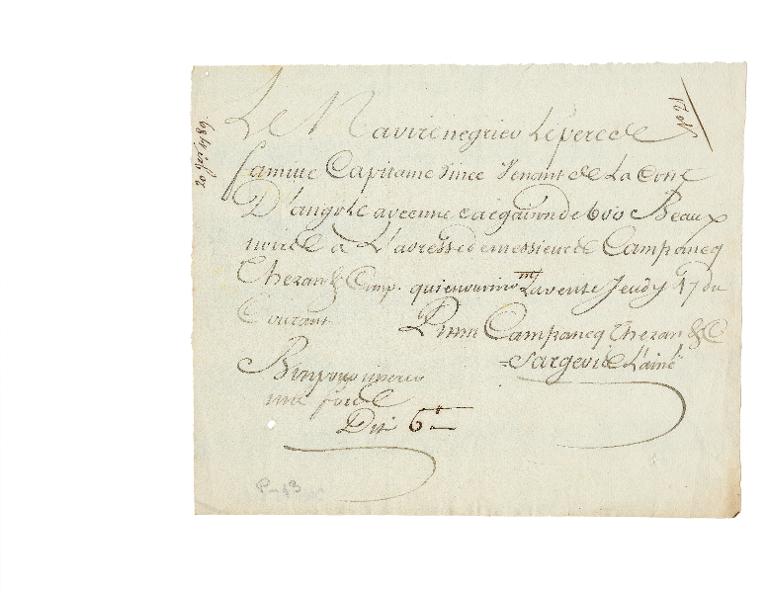 Le Navire negrier Le pere de
famille Capitaine Vence Venant de La Coste
D'angole avec une cargaison de 600 Beaux
noire a L'adresse de messieurs Campancq
Cheran & Comp. qui en ouvriront La vente Jeudy 17 du
Courant Campancq Cheran & C
Sargevil L'ainé
Bon pour
une fois
Dit 6
No 21